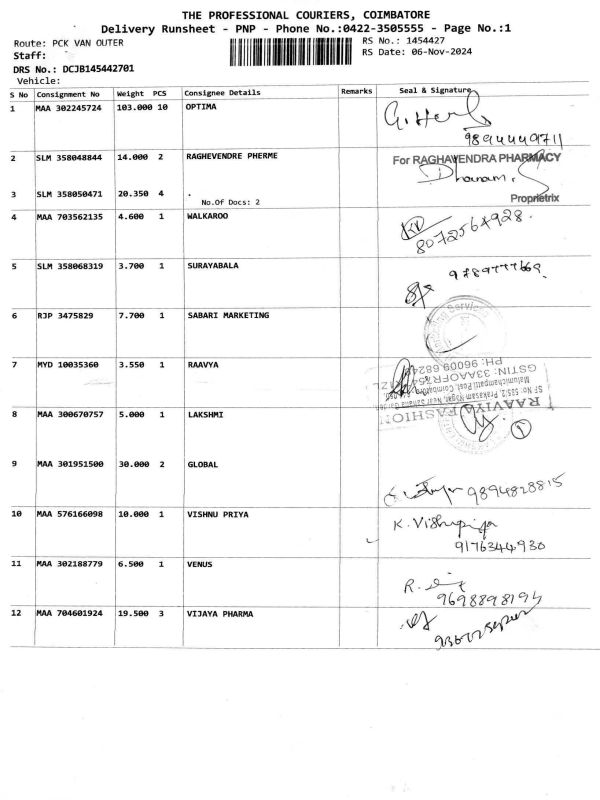 THE PROFESSIONAL COURIERS, COIMBATORE
Delivery Runsheet - PNP - Phone No.:0422-3505555 - Page No.:1
Route: PCK VAN OUTER
RS No.: 1454427
Staff:
RS Date: 06-Nov-2024
DRS No.: DCJB145442701
Vehicle:
S No Consignment No Weight PCS Consignee Details Remarks Seal & Signature
1 MAA 302245724 103.000 10 OPTIMA
9894449711
2 SLM 358048844 14.000 2 RAGHEVENDRE PHERME
For RAGHAVENDRA PHARMACY
Dhanam. S
3 SLM 358050471 20.350 4 .
No.Of Docs: 2
Proprietrix
4 MAA 703562135 4.600 1 WALKAROO
8072564928.
5 SLM 358068319 3.700 1 SURAYABALA
9789777669
6 RJP 3475829 7.700 1 SABARI MARKETING
7 MYD 10035360 3.550 1 RAAVYA
RAAVIYA FASHION
SF No: 505/2, Prakasam Nagar, Near Sahana Garden
Malumichampatti Post, Coimbatore
PH: 96009 68248
8 MAA 300670757 5.000 1 LAKSHMI
9 MAA 301951500 30.000 2 GLOBAL
9894828815
10 MAA 576166098 10.000 1 VISHNU PRIYA
K. Vishnupriya
9176344930
11 MAA 302188779 6.500 1 VENUS
9698898194
12 MAA 704601924 19.500 3 VIJAYA PHARMA